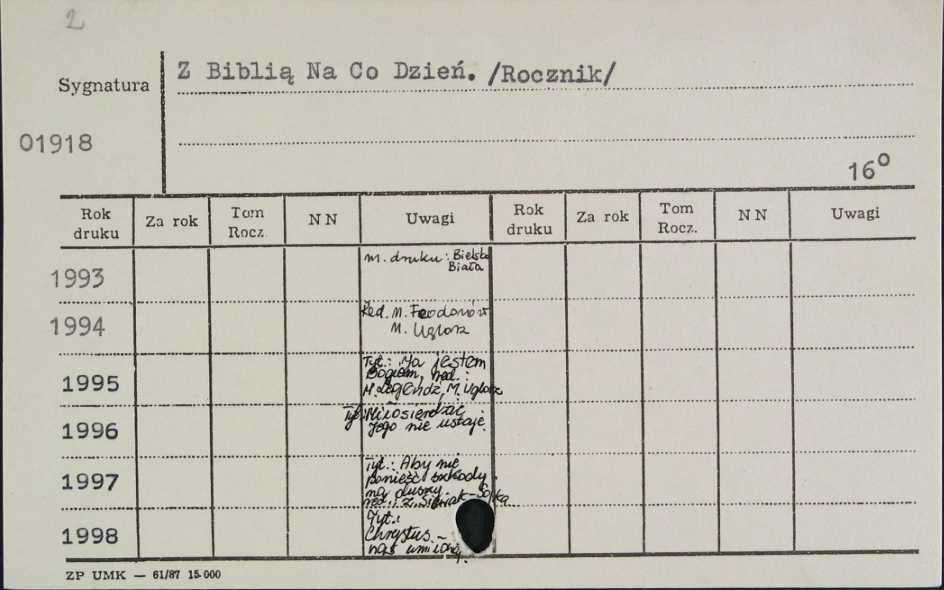 2
Z Biblią Na Co Dzień. /Rocznik/
Sygnatura
01918
16°
Rok druku Za rok Tom Rocz. N N Uwagi Rok druku Za rok Tom Rocz. N N Uwagi
1993 m. druku: Bielsko
Biała
1994 Red. M.
M. Uglorz
1995 Tyt.: Ja jestem
Bogiem, red.:
M. Legendź, M. Uglorz
1996 Tyt: Miłosierdzie
Jego nie ustaje.
1997 Tyt.: Aby nie
ponieść szkody
na duszy.
red.: Z.
1998 Tyt.:
Chrystus
nas
ZP UMK — 61/87 15.000